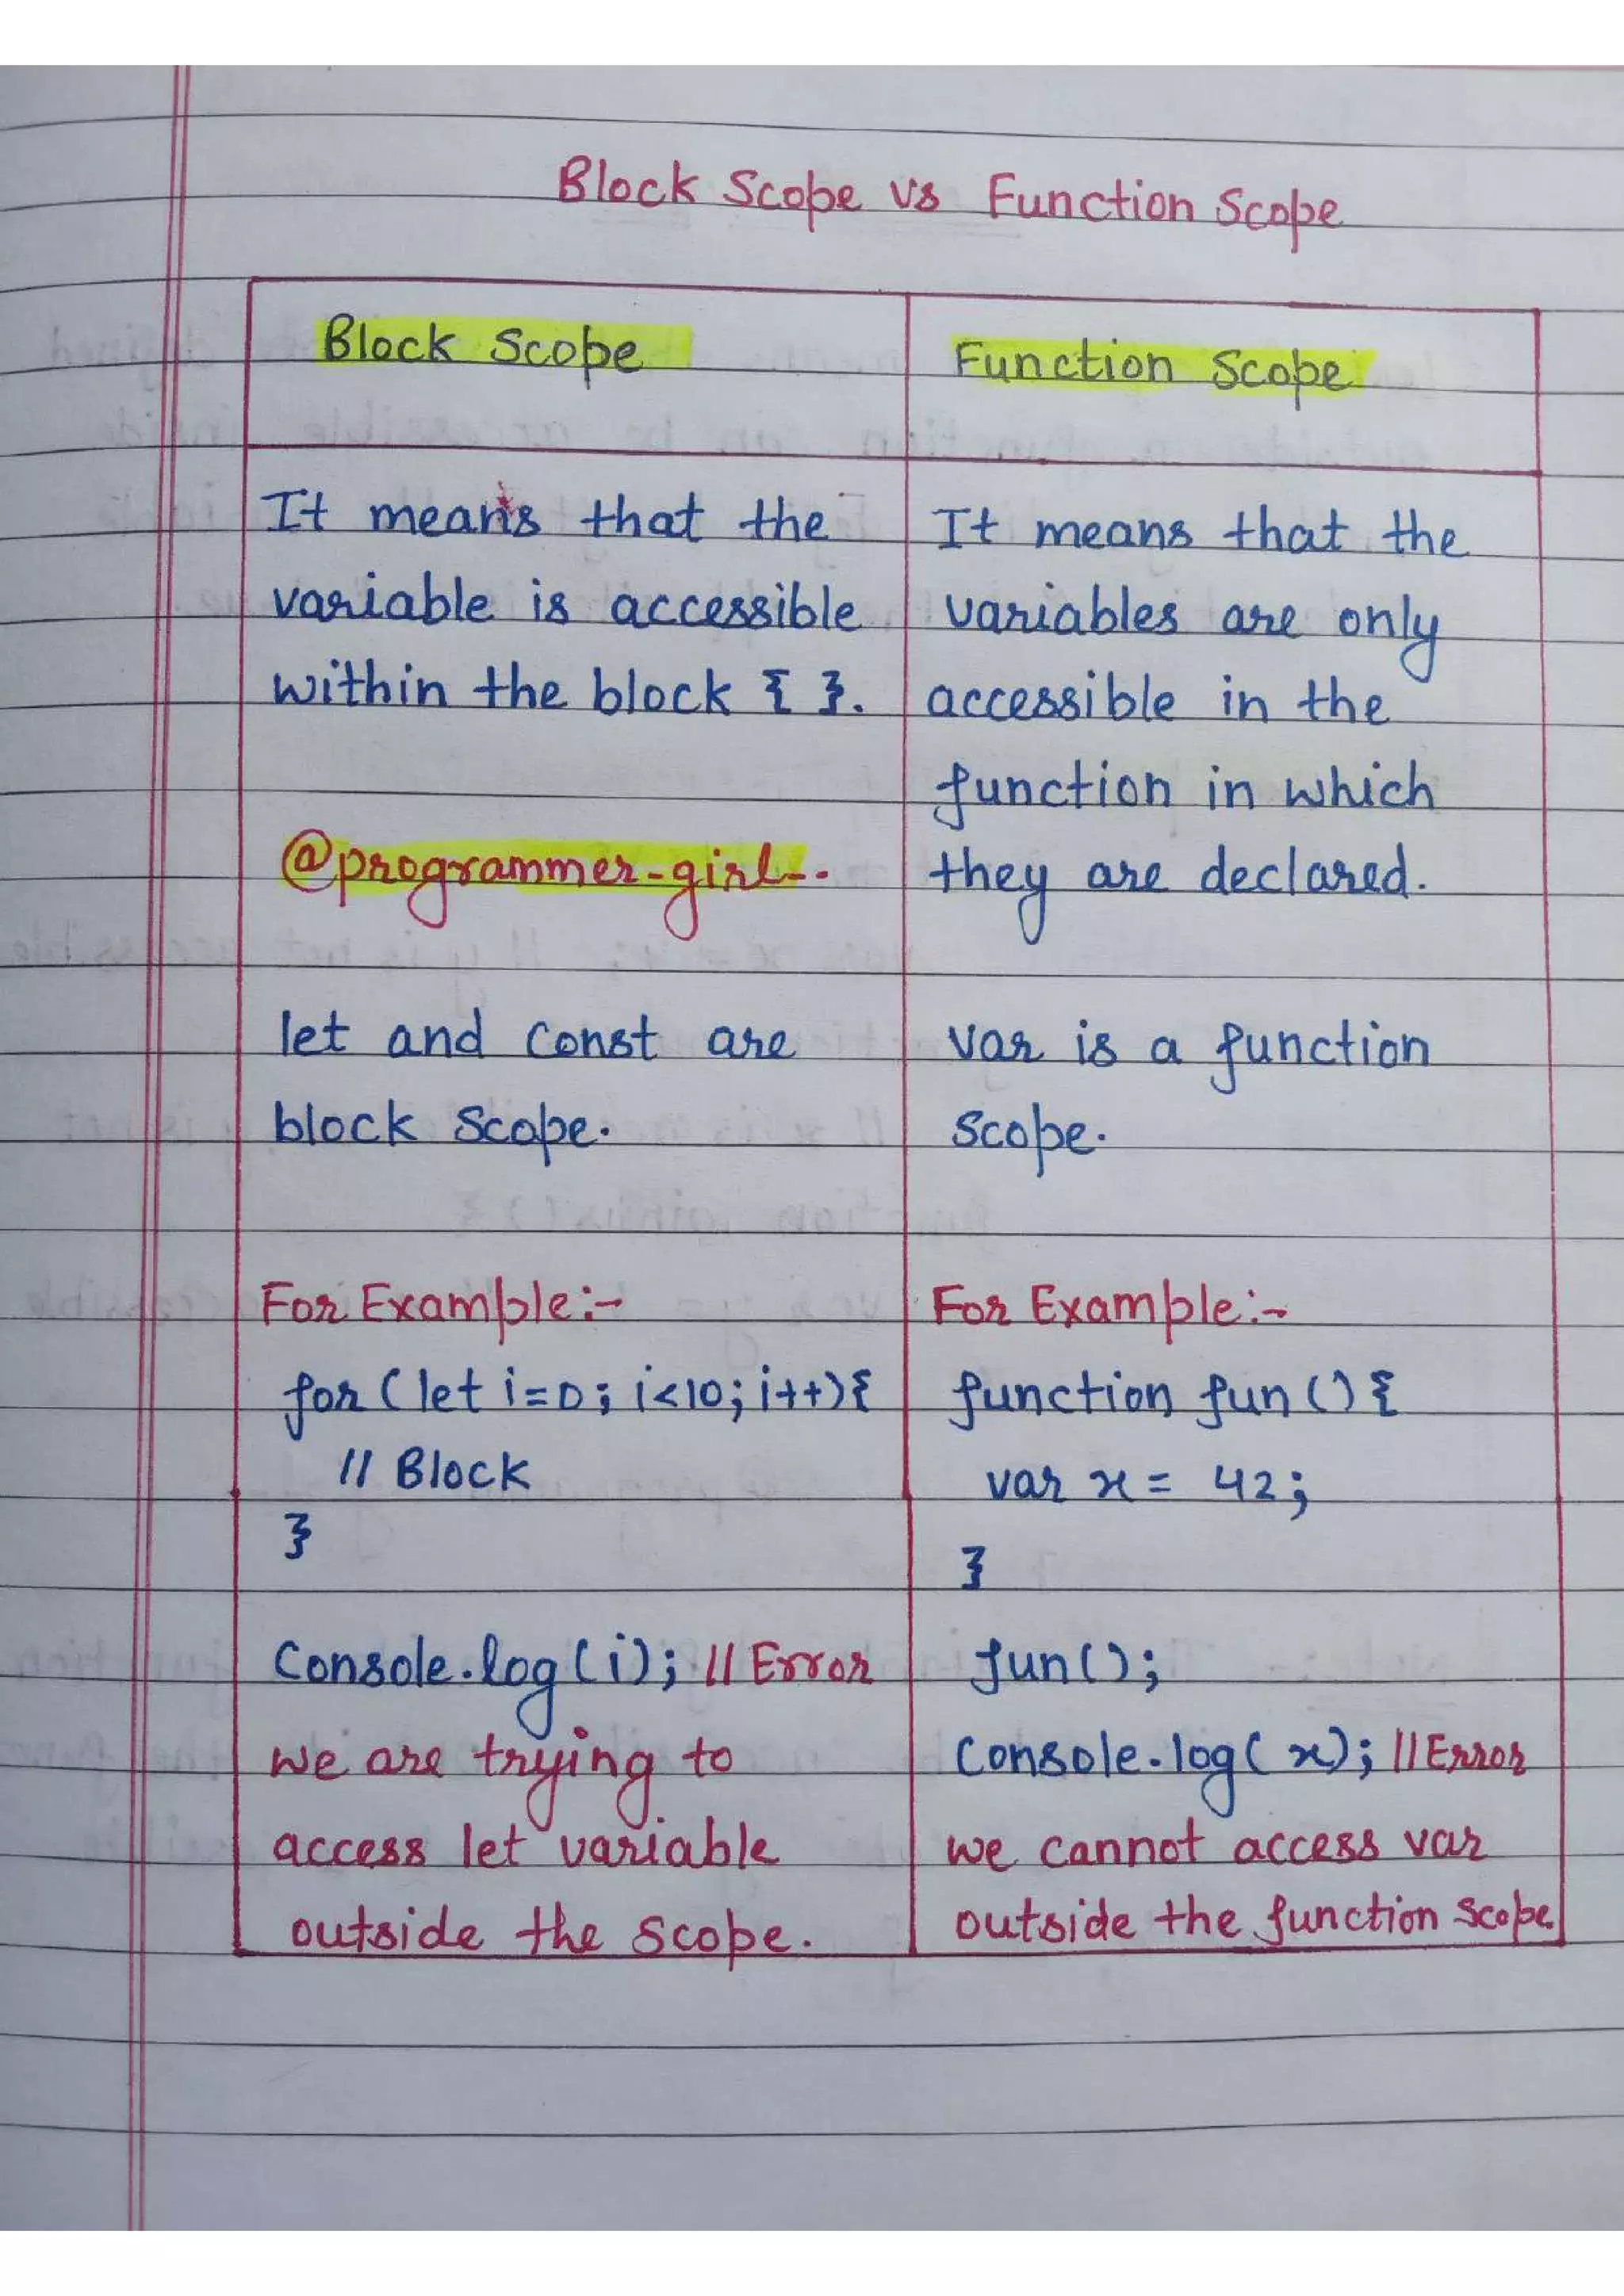 Block Scope vs Function Scope
Block Scope
It means that the
variable is accessible
within the block { }.
@programmer-girl--.
let and const are
block Scope.
For Example:-
for (let i=0; i<10; i++){
// Block
}
Console.log(i); // Error
we are trying to
access let variable
outside the scope.
Function Scope
It means that the
variables are only
accessible in the
function in which
they are declared.
var is a function
scope.
For Example:-
function fun () {
var x = 42;
}
fun();
Console.log( x); // Error
we cannot access var
outside the function scope